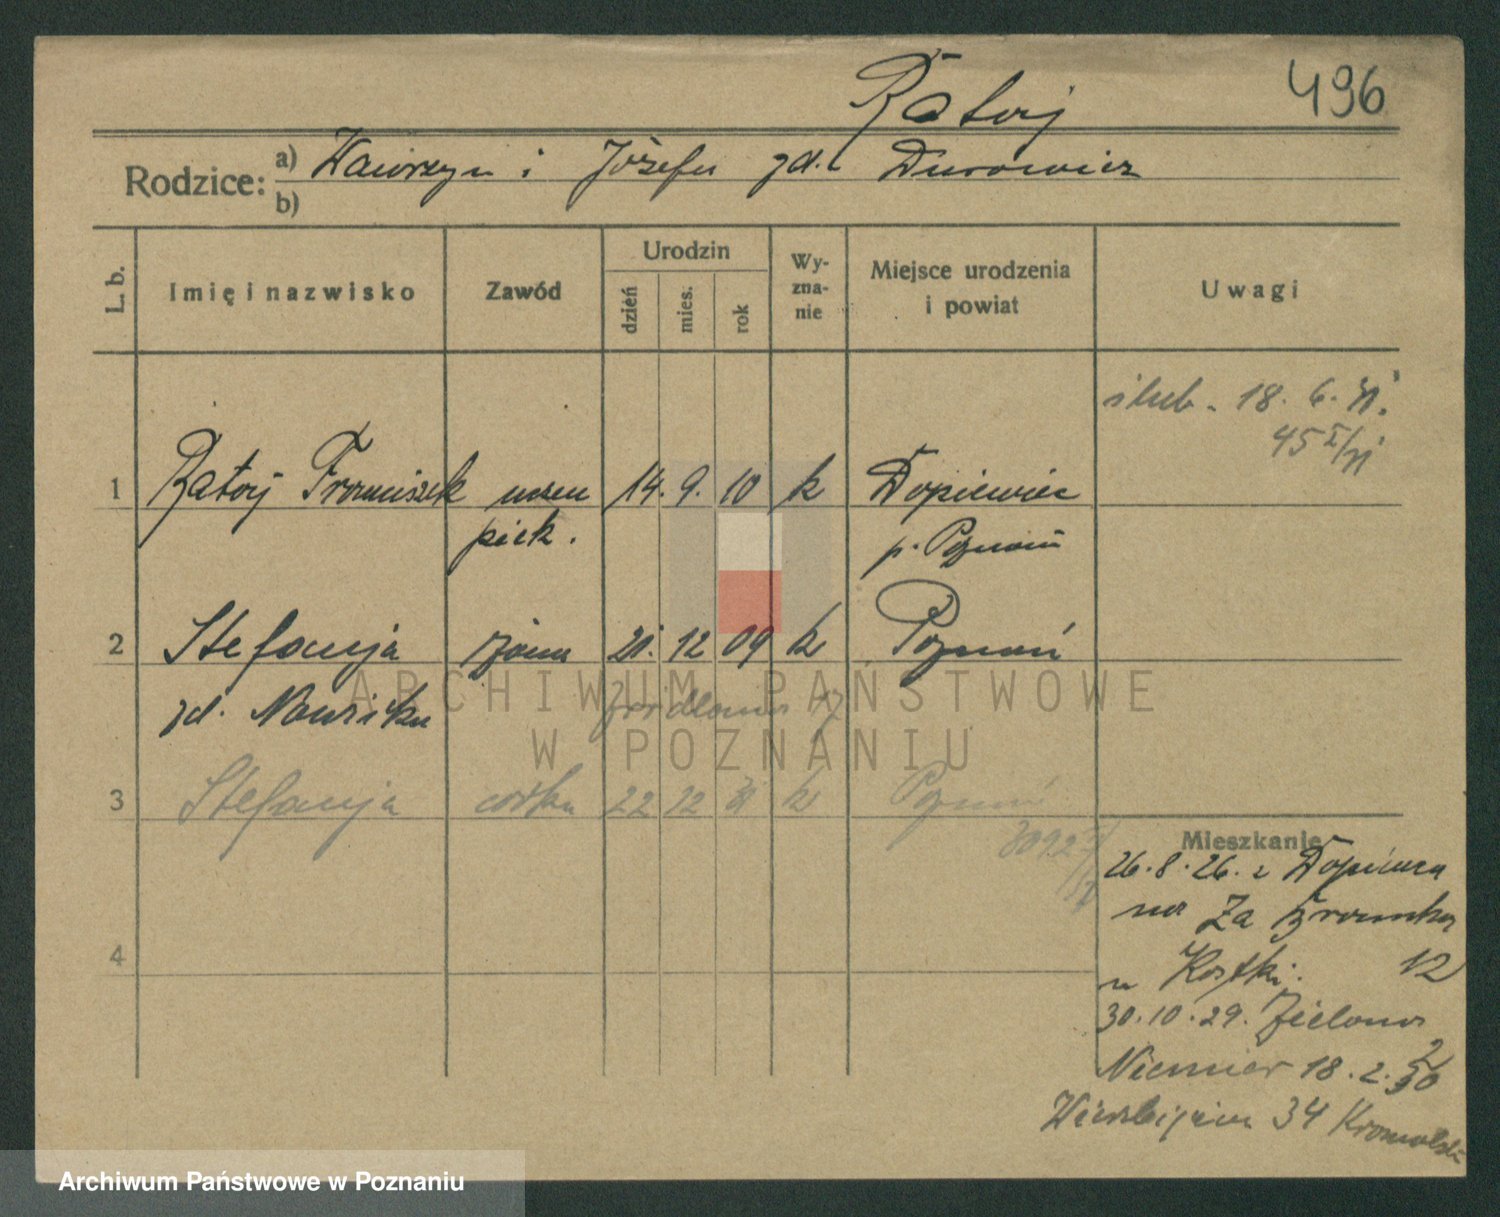 Ratajj
496
Rodzice: a) Wawrzyn i Józefa zd. Durowicz
b)
L. b.
Imię i nazwisko
Zawód
Urodzin
dzień
mies.
rok
Wy-
zna-
nie
Miejsce urodzenia
i powiat
Uwagi
ślub. 18. 6. 31.
1 Rataj Franciszek uczeń 14. 9. 10 k Dopiewiec
piek. p. Poznań
2 Stefanja żona 21. 12 09 k Poznań
zd. Nowicka
3 Stefanja córka 22 12 31 k Poznań
Mieszkanie
26.8.26. z Dopiewca
na Za Bramką
u Kostki. 12
4
30.10.29. Zielona
2
Niemier 18.2.30
34
ARCHIWUM PAŃSTWOWE
W POZNANIU
Archiwum Państwowe w Poznaniu